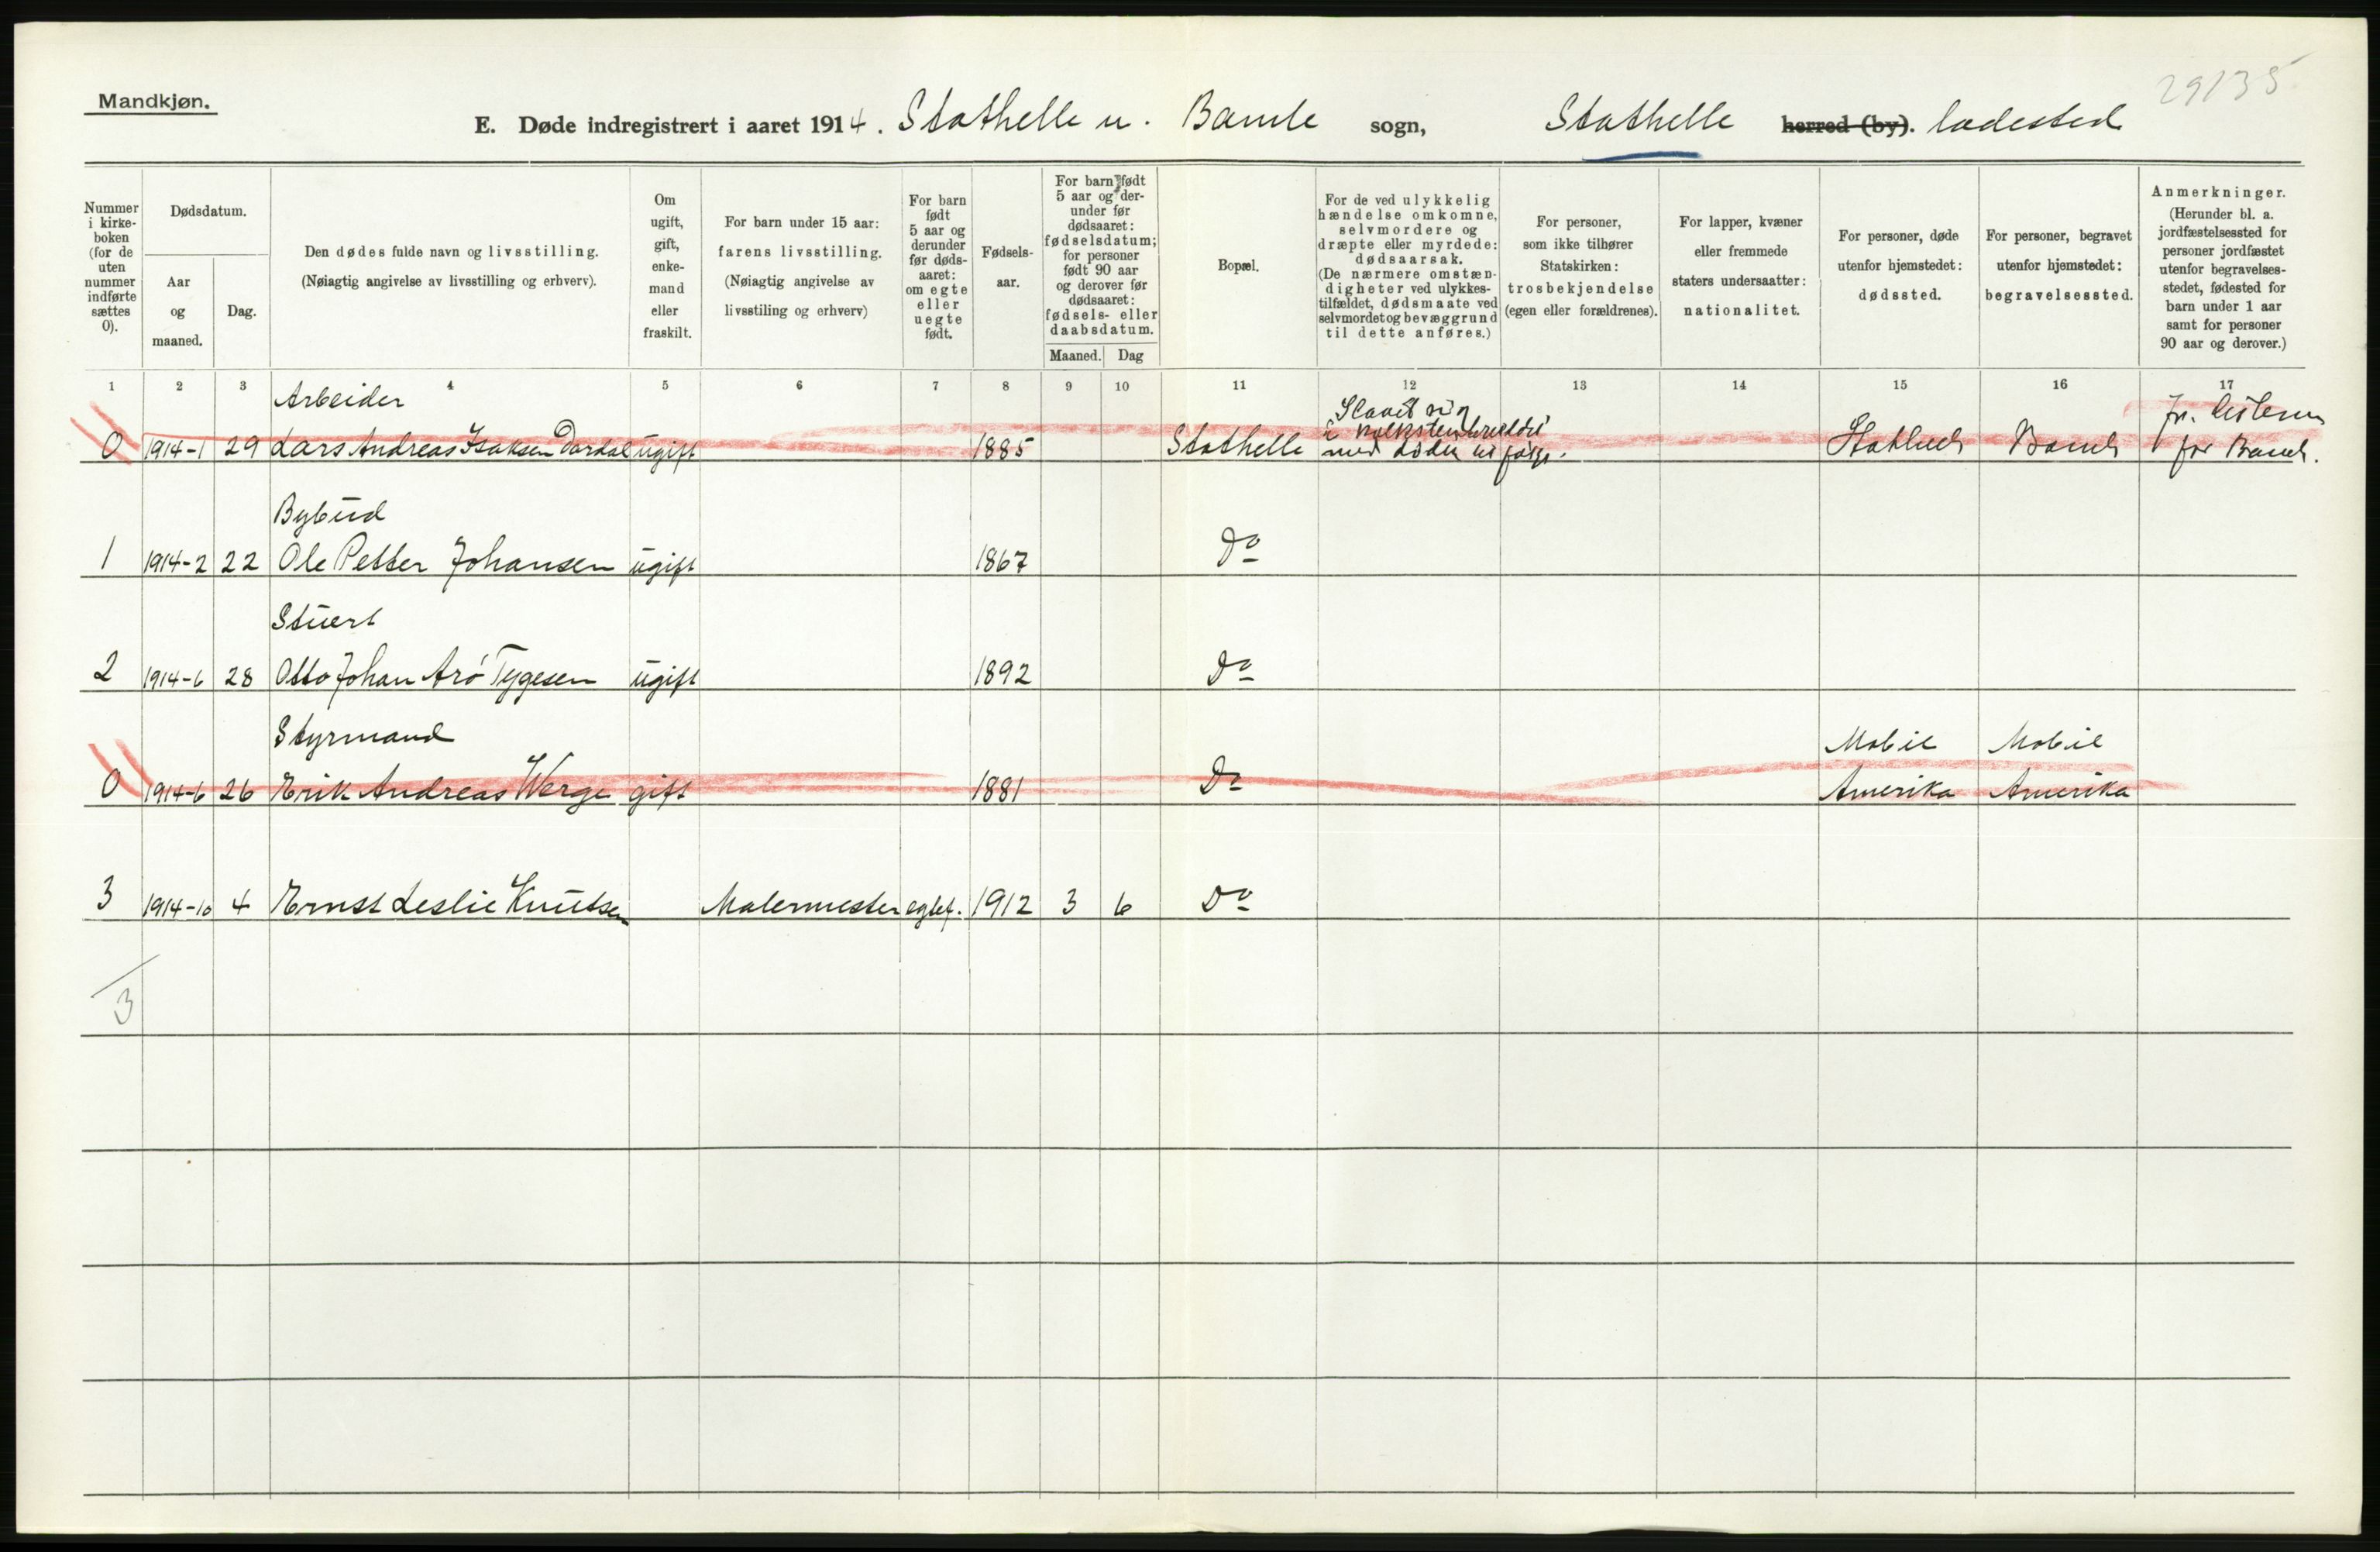 Mandkjøn.
29135
E. Døde indregistrert i aaret 1914. Stathelle u. Bamle sogn, Stathelle herred (by). ladested
Nummer i kirke-boken (for de uten nummer indførte sættes 0).
Dødsdatum.
Aar og maaned.
Dag.
Den dødes fulde navn og livsstilling.
(Nøiagtig angivelse av livsstilling og erhverv).
Om ugift, gift, enke-mand eller fraskilt.
For barn under 15 aar: farens livsstilling. (Nøiagtig angivelse av livsstiling og erhverv)
For barn født 5 aar og derunder før døds-aaret: om egte eller uegte født.
Fødsels-aar.
For barn født 5 aar og der-under før dødsaaret: fødselsdatum; for personer født 90 aar og derover før dødsaaret: fødsels- eller daabsdatum.
Maaned. Dag
Bopæl.
For de ved ulykkelig hændelse omkomne, selvmordere og dræpte eller myrdede: dødsaarsak. (De nærmere omstæn-digheter ved ulykkes-tilfældet, dødsmaate ved selvmordet og bevæggrund til dette anføres.)
For personer, som ikke tilhører Statskirken: trosbekjendelse (egen eller forældrenes).
For lapper, kvæner eller fremmede staters undersaatter: nationalitet.
For personer, døde utenfor hjemstedet: dødssted.
For personer, begravet utenfor hjemstedet: begravelsessted.
Anmerkninger. (Herunder bl. a. jordfæstelsessted for personer jordfæstet utenfor begravelses-stedet, fødested for barn under 1 aar samt for personer 90 aar og derover.)
1 2 3 4 5 6 7 8 9 10 11 12 13 14 15 16 17
Arbeider
Slaaet sig
0 1914-1 29 Lars Andreas Isaksen Dardal ugift 1885 Stathelle med døden til følge. Stathelle Bamle for Bamle.
Bybud
1 1914-2 22 Ole Petter Johansen ugift 1867 Do
Stuert
2 1914-6 28 Otto Johan Arø Tygesen ugift 1892 Do
Styrmand Mobile Mobile
0 1914-6 26 Erik Andreas Werge gift 1881 Do Amerika Amerika
3 1914-10 4 Ernst Leslie Knutsen Malermester egtef. 1912 3 6 Do
3